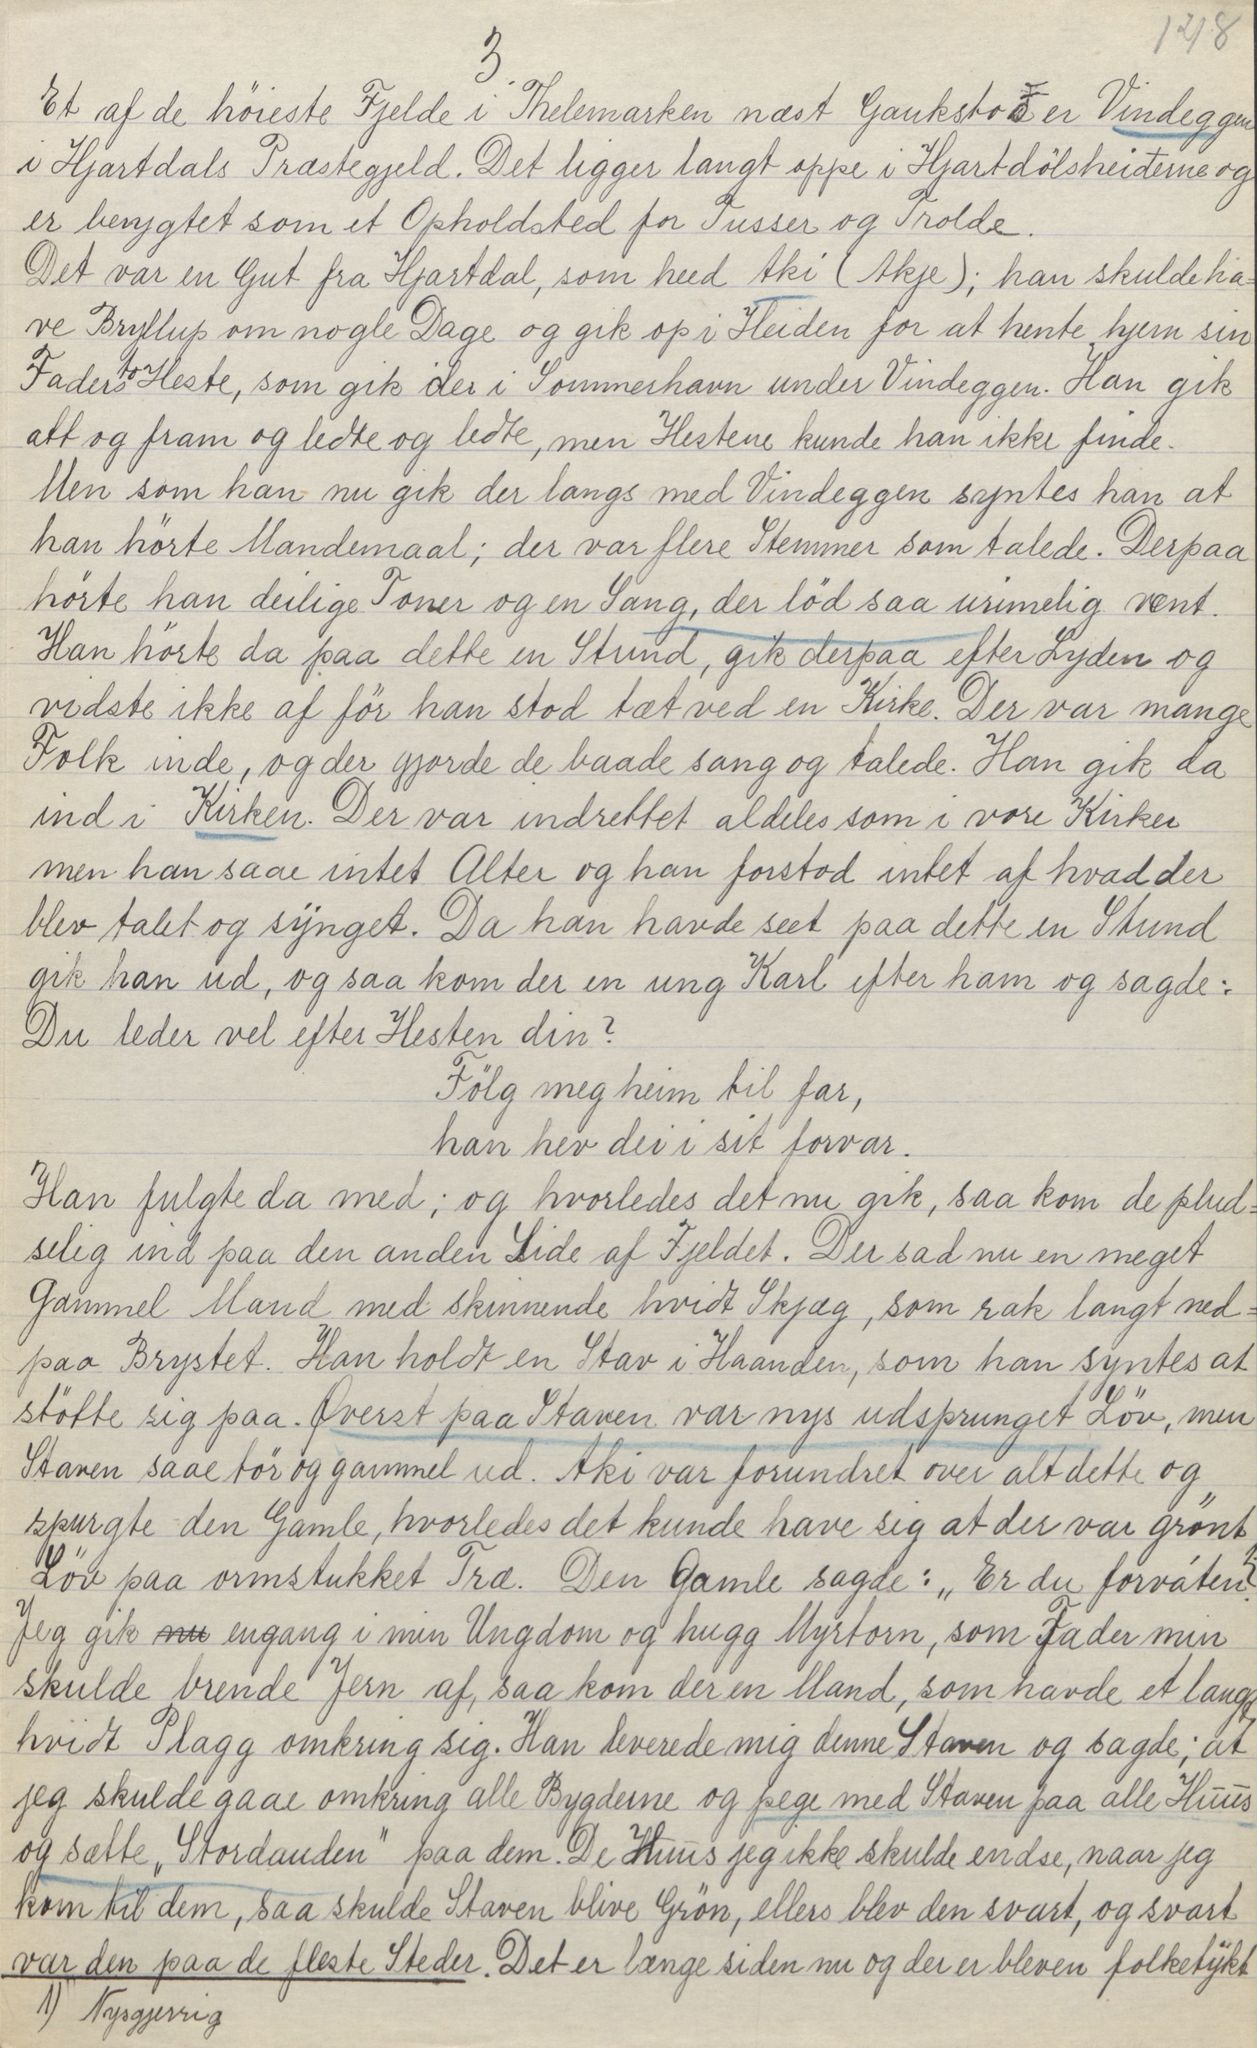 1218
3
Et af de höieste Fjelde i Thelemarken næst Gaukstos er Vindeggen
i Hjartdals Præstegjeld. Det ligger langt oppe i Hjartdölsheiderne og
er berygtet som et Opholdsted for Tusser og Trolde.
Det var en Gut fra Hjartdal, som heed Aki (Akje); han skulde ha-
ve Bryllup om nogle Dage og gik op i Heiden for at hente hjem sin
Faders to Heste, som gik der i Sommerhavn under Vindeggen. Han gik
att og fram og ledte og ledte, men Hestene kunde han ikke finde.
Men som han nu gik der langs med Vindeggen syntes han at
han hörte Mandemaal; der var flere Stemmer som talede. Derpaa
hörte han deilige Toner og en Sang, der löd saa urimelig vent.
Han hörte da paa dette en Stund, gik derpaa efter Lyden og
vidste ikke af för han stod tæt ved en Kirke. Der var mange
Folk inde, og der gjorde de baade sang og talede. Han gik da
ind i Kirken. Der var indrettet aldeles som i vore Kirker
men han saae intet Alter og han forstod intet af hvad der
blev talet og synget. Da han havde seet paa dette en Stund
gik han ud, og saa kom der en ung Karl efter ham og sagde:
Du leder vel efter Hesten din?
Fölg meg heim til far,
han hev dei i sit forvar.
Han fulgte da med; og hvorledes det nu gik, saa kom de plud=
selig ind paa den anden Side af Fjeldet. Der sad nu en meget
Gammel Mand med skinnende hvidt Skjæg, som rak langt ned=
paa Brystet. Han holdt en Stav i Haanden, som han syntes at
stötte sig paa. Överst paa Staven var nys udsprunget Löv, men
Staven saae tör og gammel ud. Aki var forundret over alt dette og
spurgte den Gamle, hvorledes det kunde have sig at der var grönt
Löv paa ormstukket Træ. Den Gamle sagde: „Er du forváten?
Jeg gik nu engang i min Ungdom og hugg Myrtorn, som Fader min
skulde brende Jern af, saa kom der en Mand, som havde et langt
hvidt Plagg omkring sig. Han leverede mig denne Staven og sagde; at
jeg skulde gaae omkring alle Bygderne og pege med Staven paa alle Huus
og sætte „Stordauden" paa dem. De Huus jeg ikke skulde endse, naar jeg
kom til dem, saa skulde Staven blive Grön, ellers blev den svart, og svart
var den paa de fleste Steder. Det er længe siden nu og der er bleven folketykt
1) Nysgjerrig